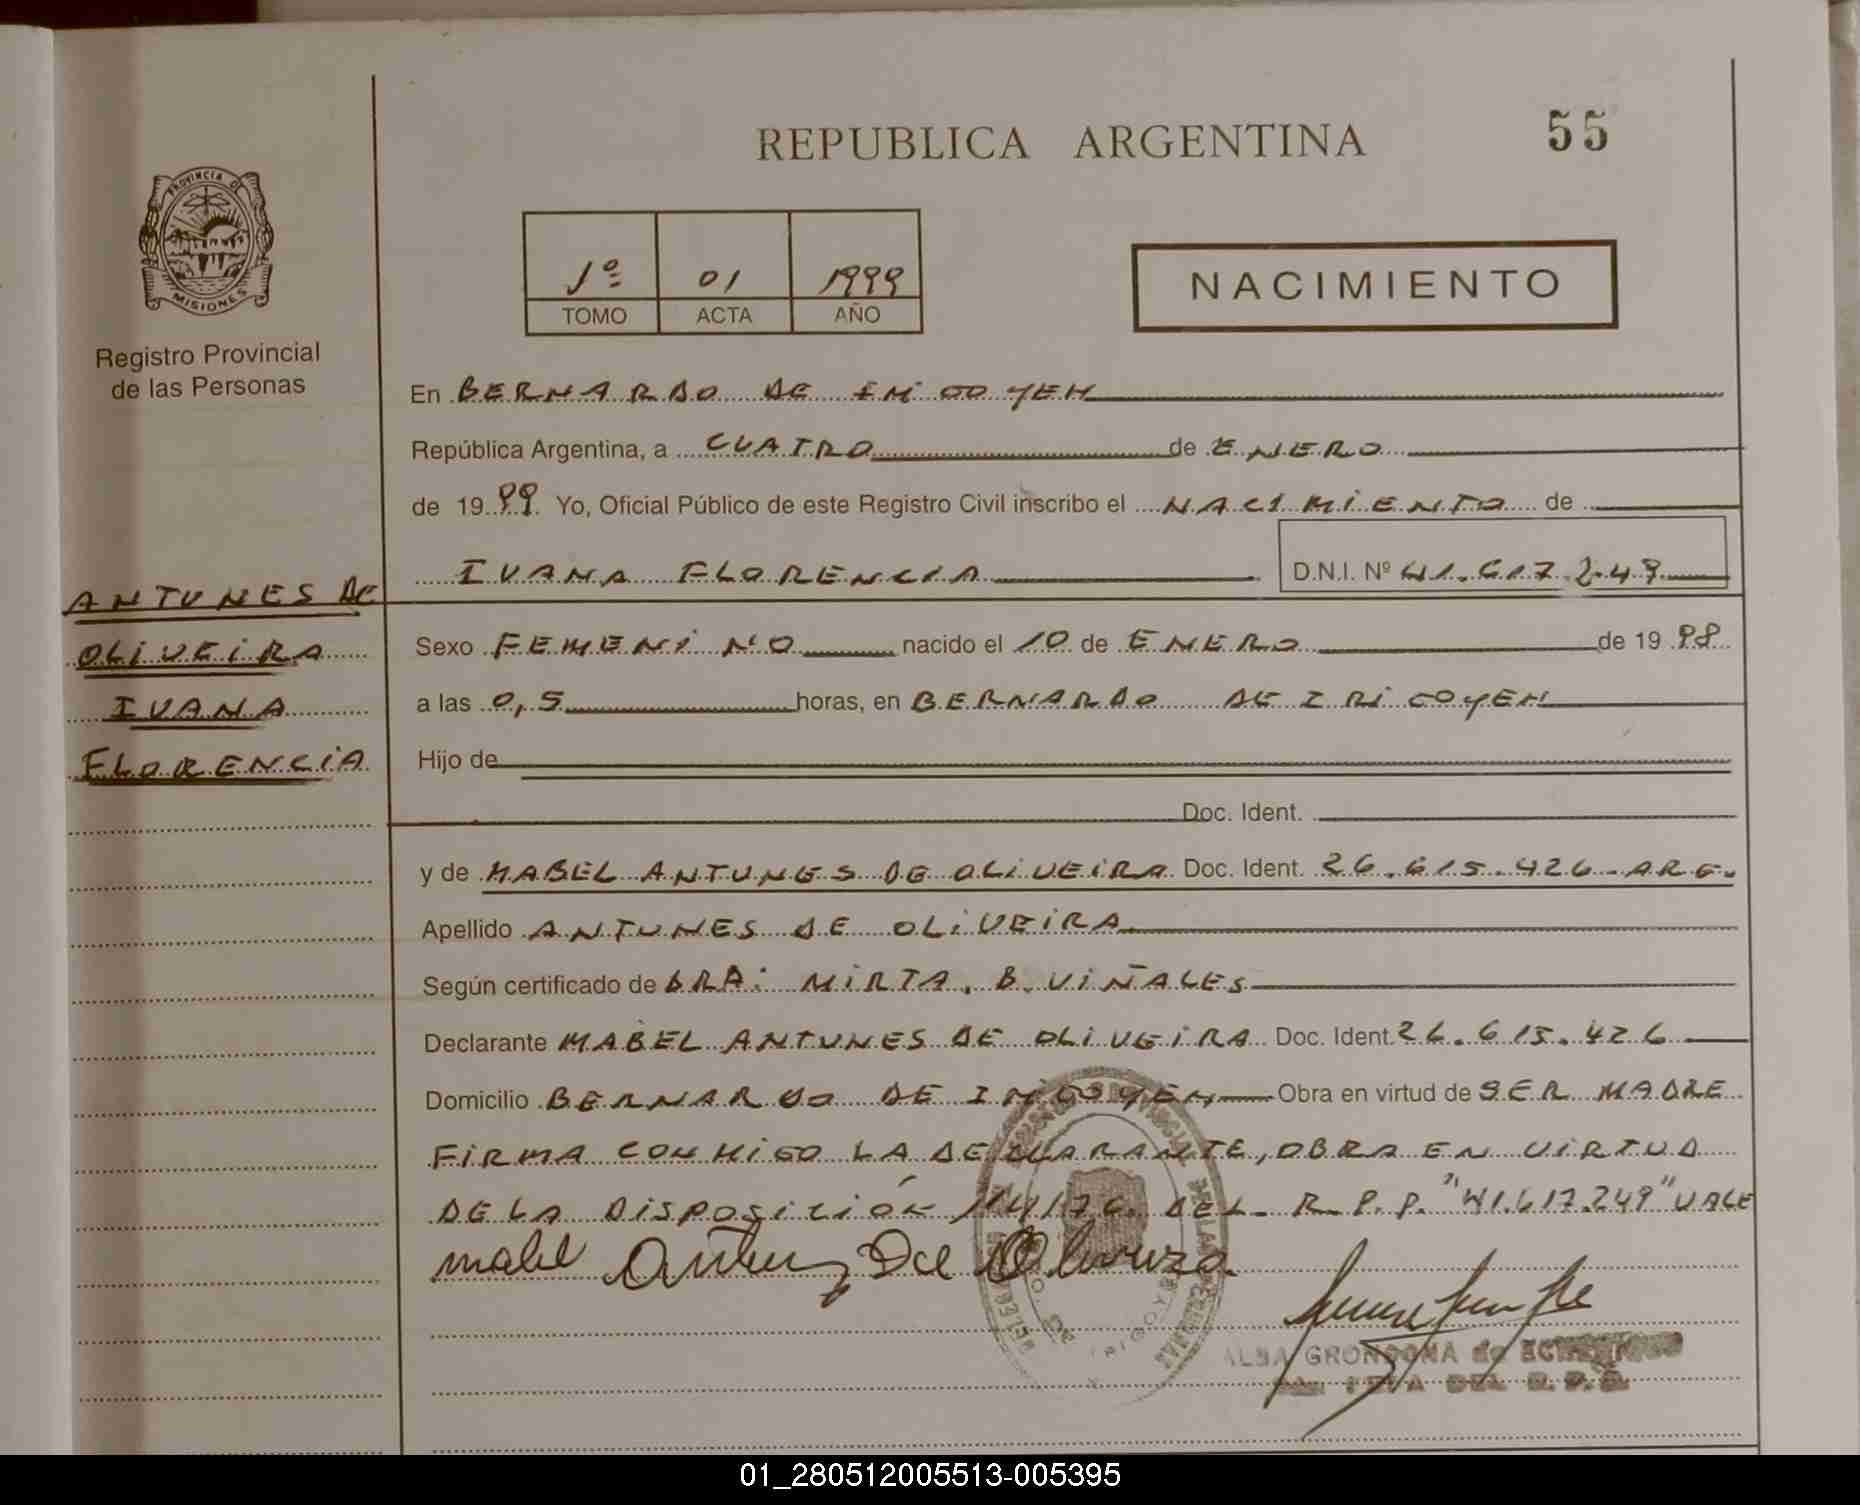 REPUBLICA ARGENTINA
55
PROVINCIA DE
MISIONES
Registro Provincial
de las Personas
1º 01 1999
TOMO ACTA AÑO
NACIMIENTO
En BERNARDO DE IRIGOYEN
República Argentina, a CUATRO de ENERO
de 1999 Yo, Oficial Público de este Registro Civil inscribo el NACIMIENTO de
IVANA FLORENCIA D.N.I. Nº 41.617.249
ANTUNES DE
OLIVEIRA
IVANA
FLORENCIA
Sexo FEMENINO nacido el 10 de ENERO de 1998
a las 0,5 horas, en BERNARDO DE IRIGOYEN
Hijo de
Doc. Ident.
y de MABEL ANTUNES DE OLIVEIRA Doc. Ident. 26.615.426 ARG.
Apellido ANTUNES DE OLIVEIRA
Según certificado de DRA: MIRTA. B. VIÑALES
Declarante MABEL ANTUNES DE OLIVEIRA Doc. Ident. 26.615.426
Domicilio BERNARDO DE IRIGOYEN Obra en virtud de SER MADRE
FIRMA CONMIGO LA DECLARANTE, OBRA EN VIRTUD
DE LA DISPOSICIÓN 14/76 DEL R.P.P. "41.617.249" VALE
mabel Antunez De Oliveira
ALBA GRONDONA de
DEL R.P.P.
01_280512005513-005395